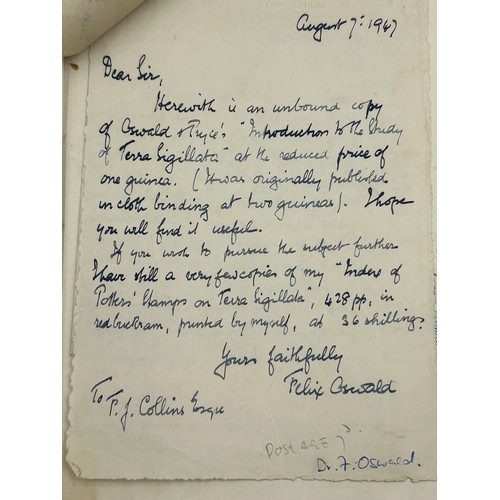 August 7: 1947
Dear Sir,
Herewith is an unbound copy
of Oswald & Pryce's "Introduction to the Study
of Terra Sigillata" at the reduced price of
one guinea. (It was originally published
in cloth binding at two guineas). I hope
you will find it useful.
If you wish to pursue the subject further
I have still a very few copies of my "Index of
Potters' Stamps on Terra Sigillata", 428 pp, in
red buckram, printed by myself, at 36 shillings.
Yours faithfully
Felix Oswald
To F. J. Collins Esqre
POSTAGE?
Dr. F. Oswald.